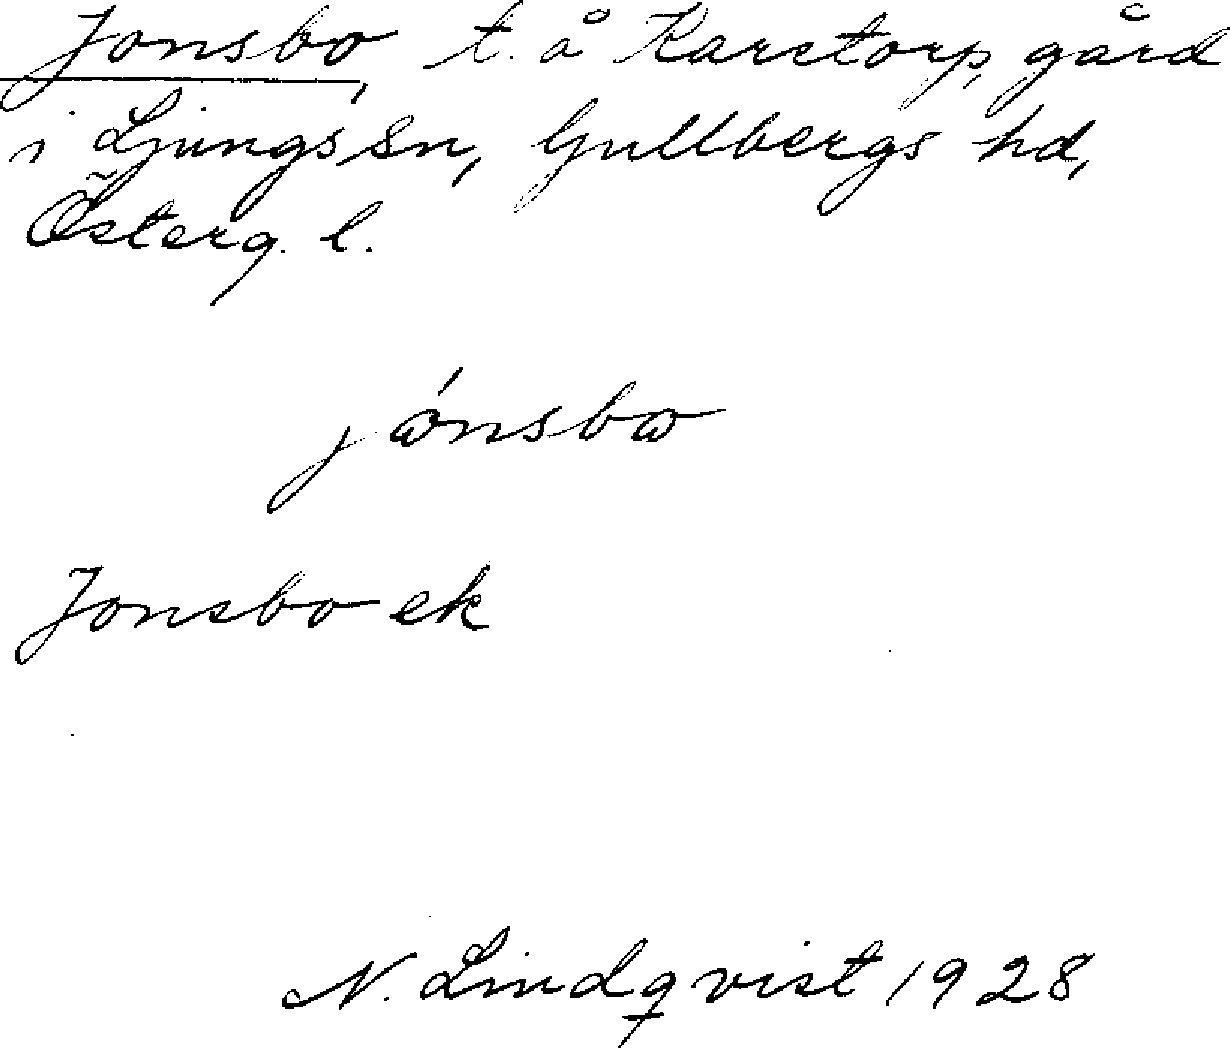 Jonsbo, t. å Karstorp, gård
i Ljungs sn, Gullbergs hd,
Österg. l.
jónsbo
Jonsbo ek
N. Lindqvist 1928